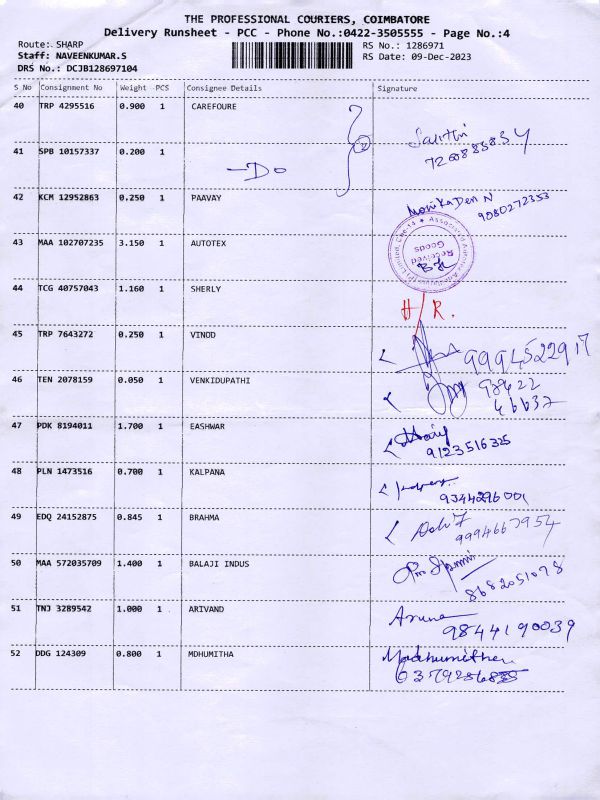 THE PROFESSIONAL COURIERS, COIMBATORE
Delivery Runsheet - PCC - Phone No.:0422-3505555 - Page No.:4
Route: SHARP RS No.: 1286971
Staff: NAVEENKUMAR.S RS Date: 09-Dec-2023
DRS No.: DCJB128697104
S No Consignment No Weight PCS Consignee Details Signature
40 TRP 4295516 0.900 1 CAREFOURE
41 SPB 10157337 0.200 1 -Do
42 KCM 12952863 0.250 1 PAAVAY 9080272353
43 MAA 102707235 3.150 1 AUTOTEX Received Goods
44 TCG 40757043 1.160 1 SHERLY H/R.
45 TRP 7643272 0.250 1 VINOD 9994522917
46 TEN 2078159 0.050 1 VENKIDUPATHI
47 PDK 8194011 1.700 1 EASHWAR 9123516325
48 PLN 1473516 0.700 1 KALPANA 9344296001
49 EDQ 24152875 0.845 1 BRAHMA
50 MAA 572035709 1.400 1 BALAJI INDUS 8682051078
51 TNJ 3289542 1.000 1 ARIVAND Aruna
9844190039
52 DDG 124309 0.800 1 MDHUMITHA Madhumitha